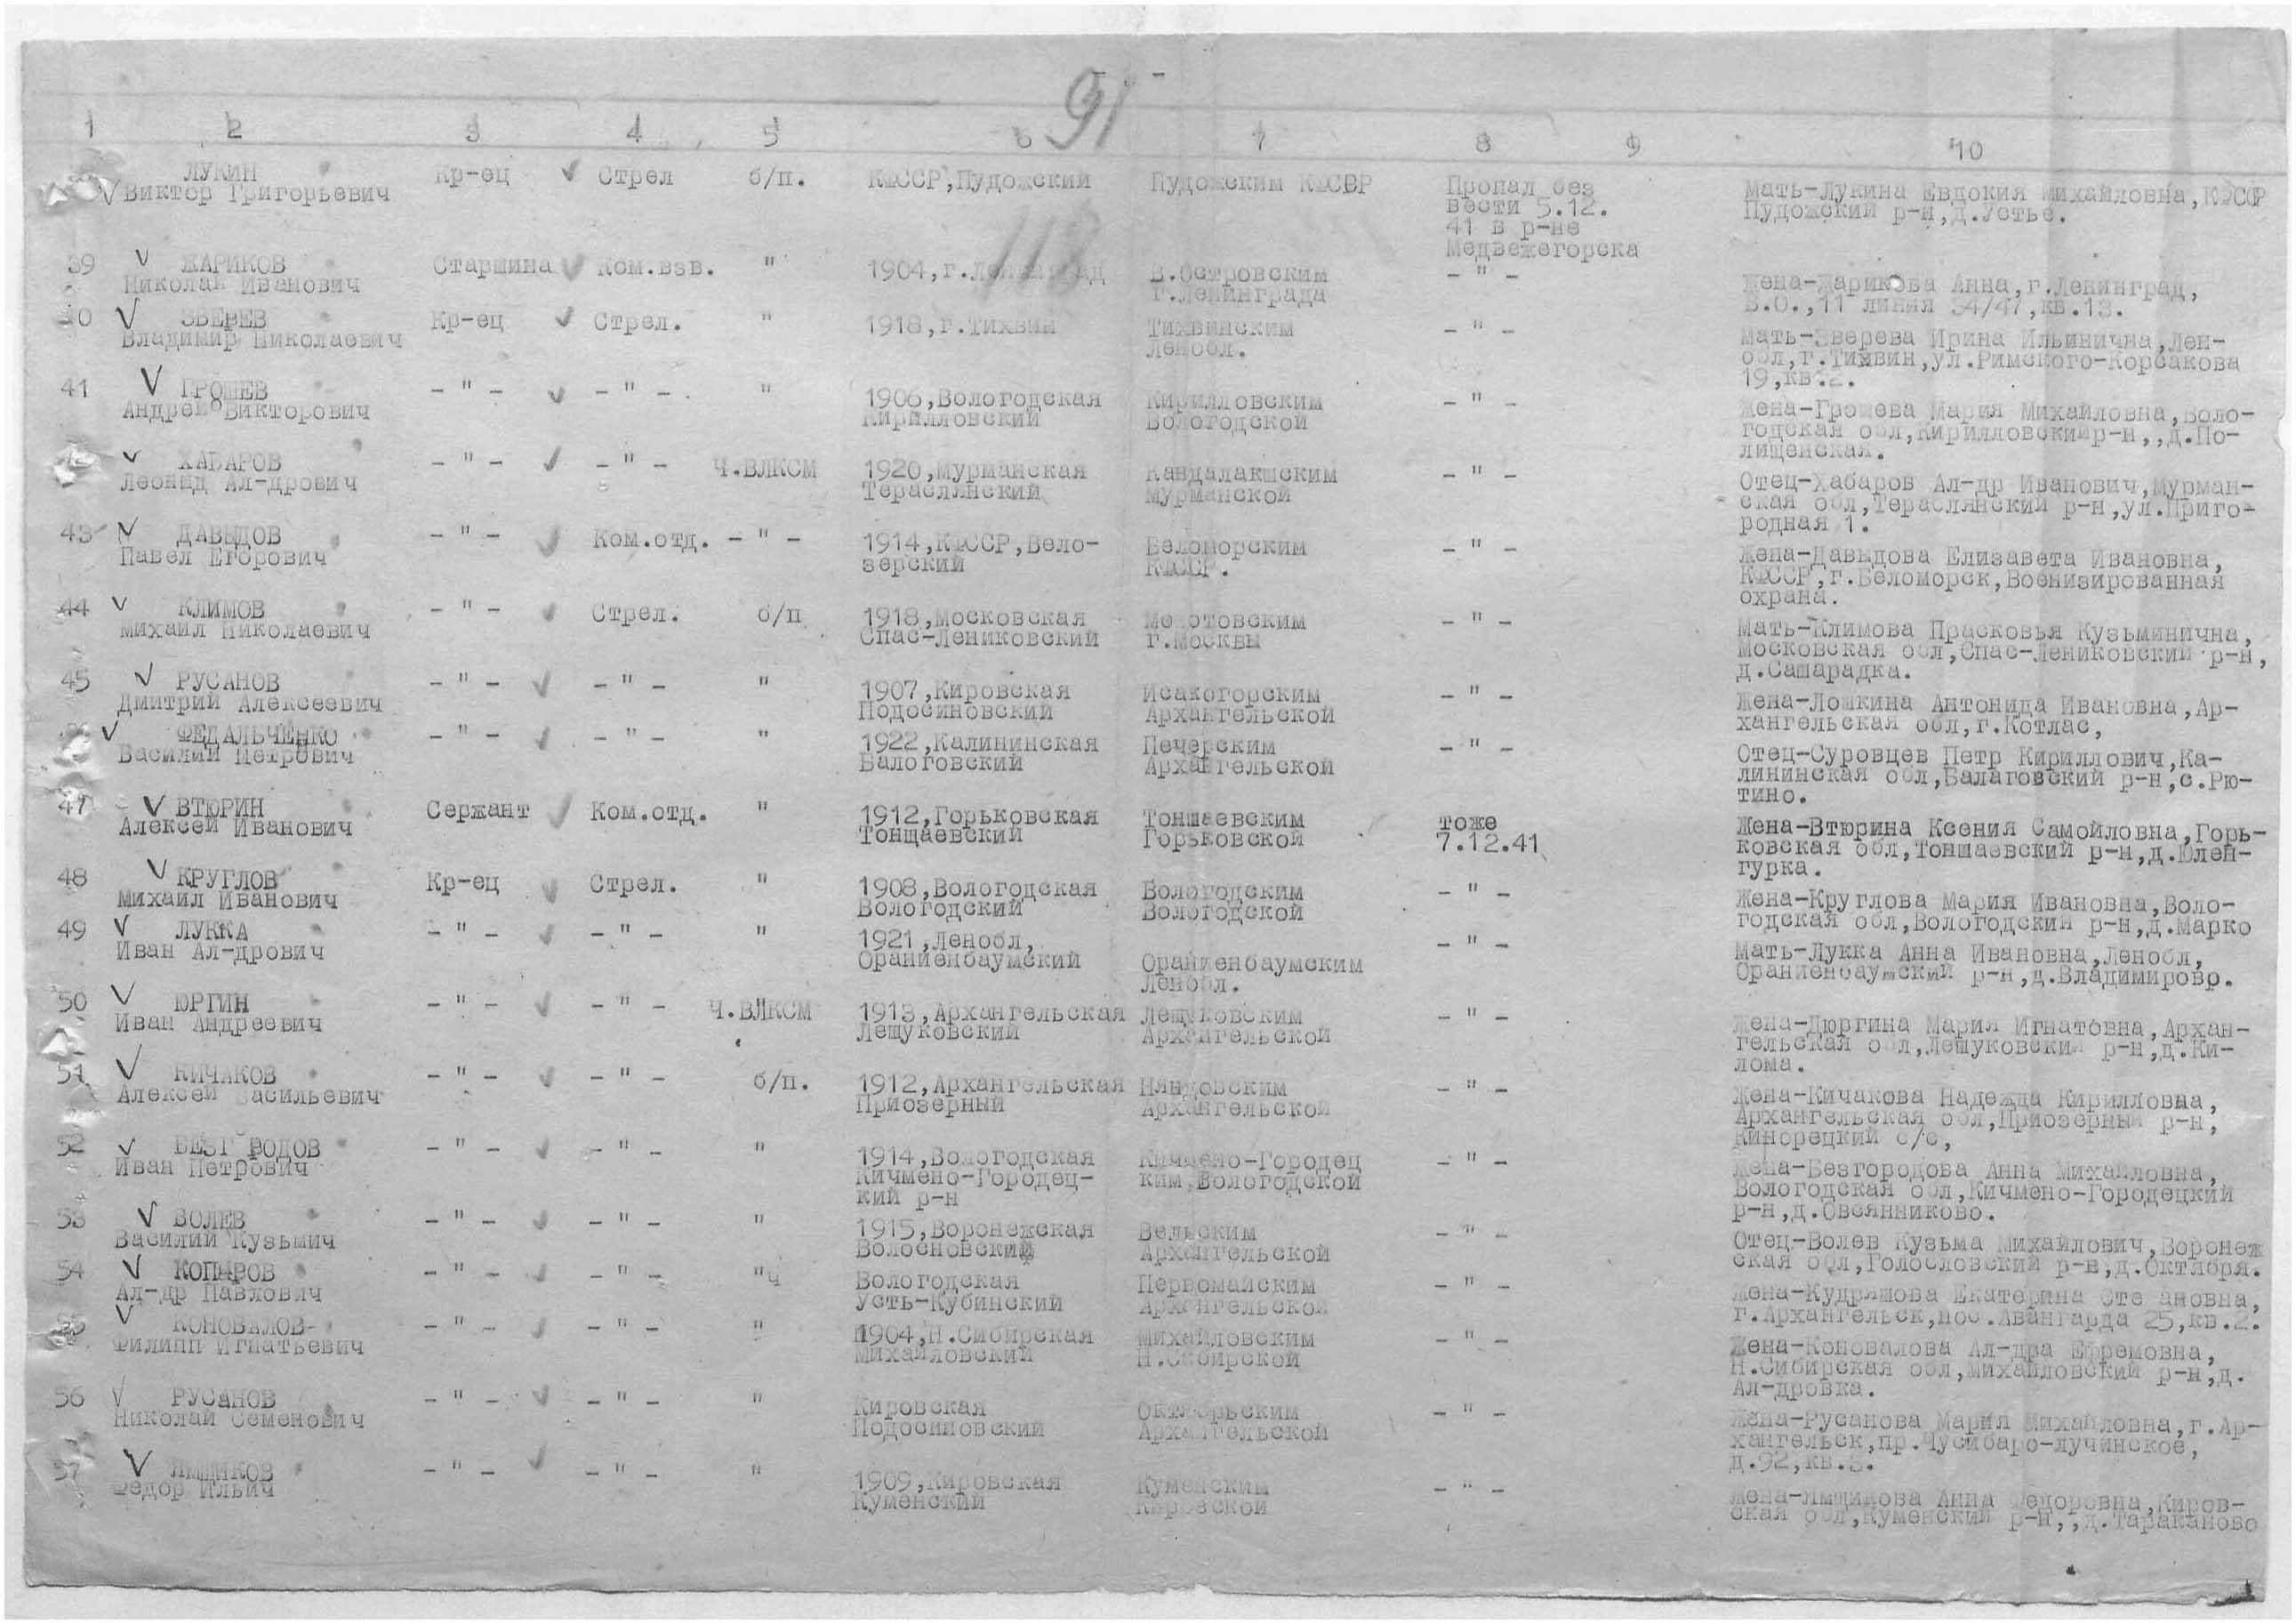 91
1 2 3 4 5 6 7 8 9 10
118
ЛУКИН Кр-ец Стрел б/п. КФССР,Пудожский Пудожским КФССР Пропал без Мать-Лукина Евдокия Михайловна,КФССР
Виктор Григорьевич вести 5.12. Пудожский р-н,д.Устье.
41 в р-не
Медвежегорска
39 ЖАРИКОВ Старшина Ком.взв. " 1904,г.Ленинград В.Островским - " - Жена-Жарикова Анна,г.Ленинград,
Николай Иванович г.Ленинграда В.О.,11 линия 34/47,кв.13.
40 ЗВЕРЕВ Кр-ец Стрел. " 1918,г.Тихвин Тихвинским - " - Мать-Зверева Ирина Ильинична,Лен-
Владимир Николаевич Ленобл. обл,г.Тихвин,ул.Римского-Корсакова
19,кв.2.
41 ГРОШЕВ - " - - " - " 1906,Вологодская Кирилловским - " - Жена-Грошева Мария Михайловна,Воло-
Андрей Викторович Кирилловский Вологодской годская обл,Кирилловский р-н,,д.По-
лищенская.
42 ХАБАРОВ - " - - " - Ч.ВЛКСМ 1920,Мурманская Кандалакшским - " - Отец-Хабаров Ал-др Иванович,Мурман-
Леонид Ал-дрович Тераслянский Мурманской ская обл,Тераслянский р-н,ул.Приго-
родная 1.
43 ДАВЫДОВ - " - Ком.отд. - " - 1914,КФССР,Бело- Беломорским - " - Жена-Давыдова Елизавета Ивановна,
Павел Егорович зерский КФССР. КФССР,г.Беломорск,Военизированная
охрана.
44 КЛИМОВ - " - Стрел. б/п 1918,Московская Молотовским - " - Мать-Климова Прасковья Кузьминична,
Михаил Николаевич Спас-Лениковский г.Москвы Московская обл,Спас-Лениковский р-н,
д.Сашарадка.
45 РУСАНОВ - " - - " - " 1907,Кировская Исакогорским - " - Жена-Лошкина Антонида Ивановна,Ар-
Дмитрий Алексеевич Подосиновский Архангельской хангельская обл,г.Котлас,
ФЕДАЛЬЧЕНКО - " - - " - " 1922,Калининская Печерским - " - Отец-Суровцев Петр Кириллович,Ка-
Василий Петрович Балоговский Архангельской лининская обл,Балаговский р-н,с.Рю-
тино.
47 ВТЮРИН Сержант Ком.отд. " 1912,Горьковская Тоншаевским тоже Жена-Втюрина Ксения Самойловна,Горь-
Алексей Иванович Тонщаевский Горьковской 7.12.41 ковская обл,Тоншаевский р-н,д.Юлен-
гурка.
48 КРУГЛОВ Кр-ец Стрел. " 1908,Вологодская Вологодским - " - Жена-Круглова Мария Ивановна,Воло-
Михаил Иванович Вологодский Вологодской годская обл,Вологодский р-н,д.Марко
49 ЛУККА - " - - " - " 1921,Ленобл, Ораниенбаумским - " - Мать-Лукка Анна Ивановна,Ленобл,
Иван Ал-дрович Ораниенбаумский Ленобл. Ораниенбаумский р-н,д.Владимирово.
50 ЮРГИН - " - - " - Ч.ВЛКСМ 1913,Архангельская Лещуковским - " - Жена-Дюргина Мария Игнатовна,Архан-
Иван Андреевич Лещуковский Архангельской гельская обл,Лещуковский р-н,д.Ки-
лома.
51 КИЧАКОВ - " - - " - б/п. 1912,Архангельская Няндовским - " - Жена-Кичакова Надежда Кирилловна,
Алексей Васильевич Приозерный Архангельской Архангельская обл,Приозерный р-н,
Кинорецкий с/с,
52 БЕЗГОРОДОВ - " - - " - " 1914,Вологодская Кичмено-Городец - " - Жена-Безгородова Анна Михайловна,
Иван Петрович Кичмено-Городец- ким,Вологодской Вологодская обл,Кичмено-Городецкий
кий р-н р-н,д.Овсянниково.
53 ВОЛЕВ - " - - " - " 1915,Воронежская Вельским - " - Отец-Волев Кузьма Михайлович,Воронеж
Василий Кузьмич Волосновский Архангельской ская обл,Голословский р-н,д.Октября.
54 КОПЫРОВ - " - - " - "ч Вологодская Первомайским - " - Жена-Кудряшова Екатерина Степановна,
Ал-др Павлович Усть-Кубинский Архангельской г.Архангельск,пос.Авангарда 25,кв.2.
55 КОНОВАЛОВ - " - - " - " 1904,Н.Сибирская Михайловским - " - Жена-Коновалова Ал-дра Ефремовна,
Филипп Игнатьевич Михайловский Н.Сибирской Н.Сибирская обл,Михайловский р-н,д.
Ал-дровка.
56 РУСАНОВ - " - - " - " Кировская Октябрьским - " - Жена-Русанова Мария Михайловна,г.Ар-
Николай Семенович Подосиновский Архангельской хангельск,пр.Чусибаро-лучинское,
д.92,кв.
57 ЯМЩИКОВ - " - - " - " 1909,Кировская Куменским - " - Жена-Ямщикова Анна Федоровна,Киров-
Федор Ильич Куменский Кировской ская обл,Куменский р-н,,д.Тараканово